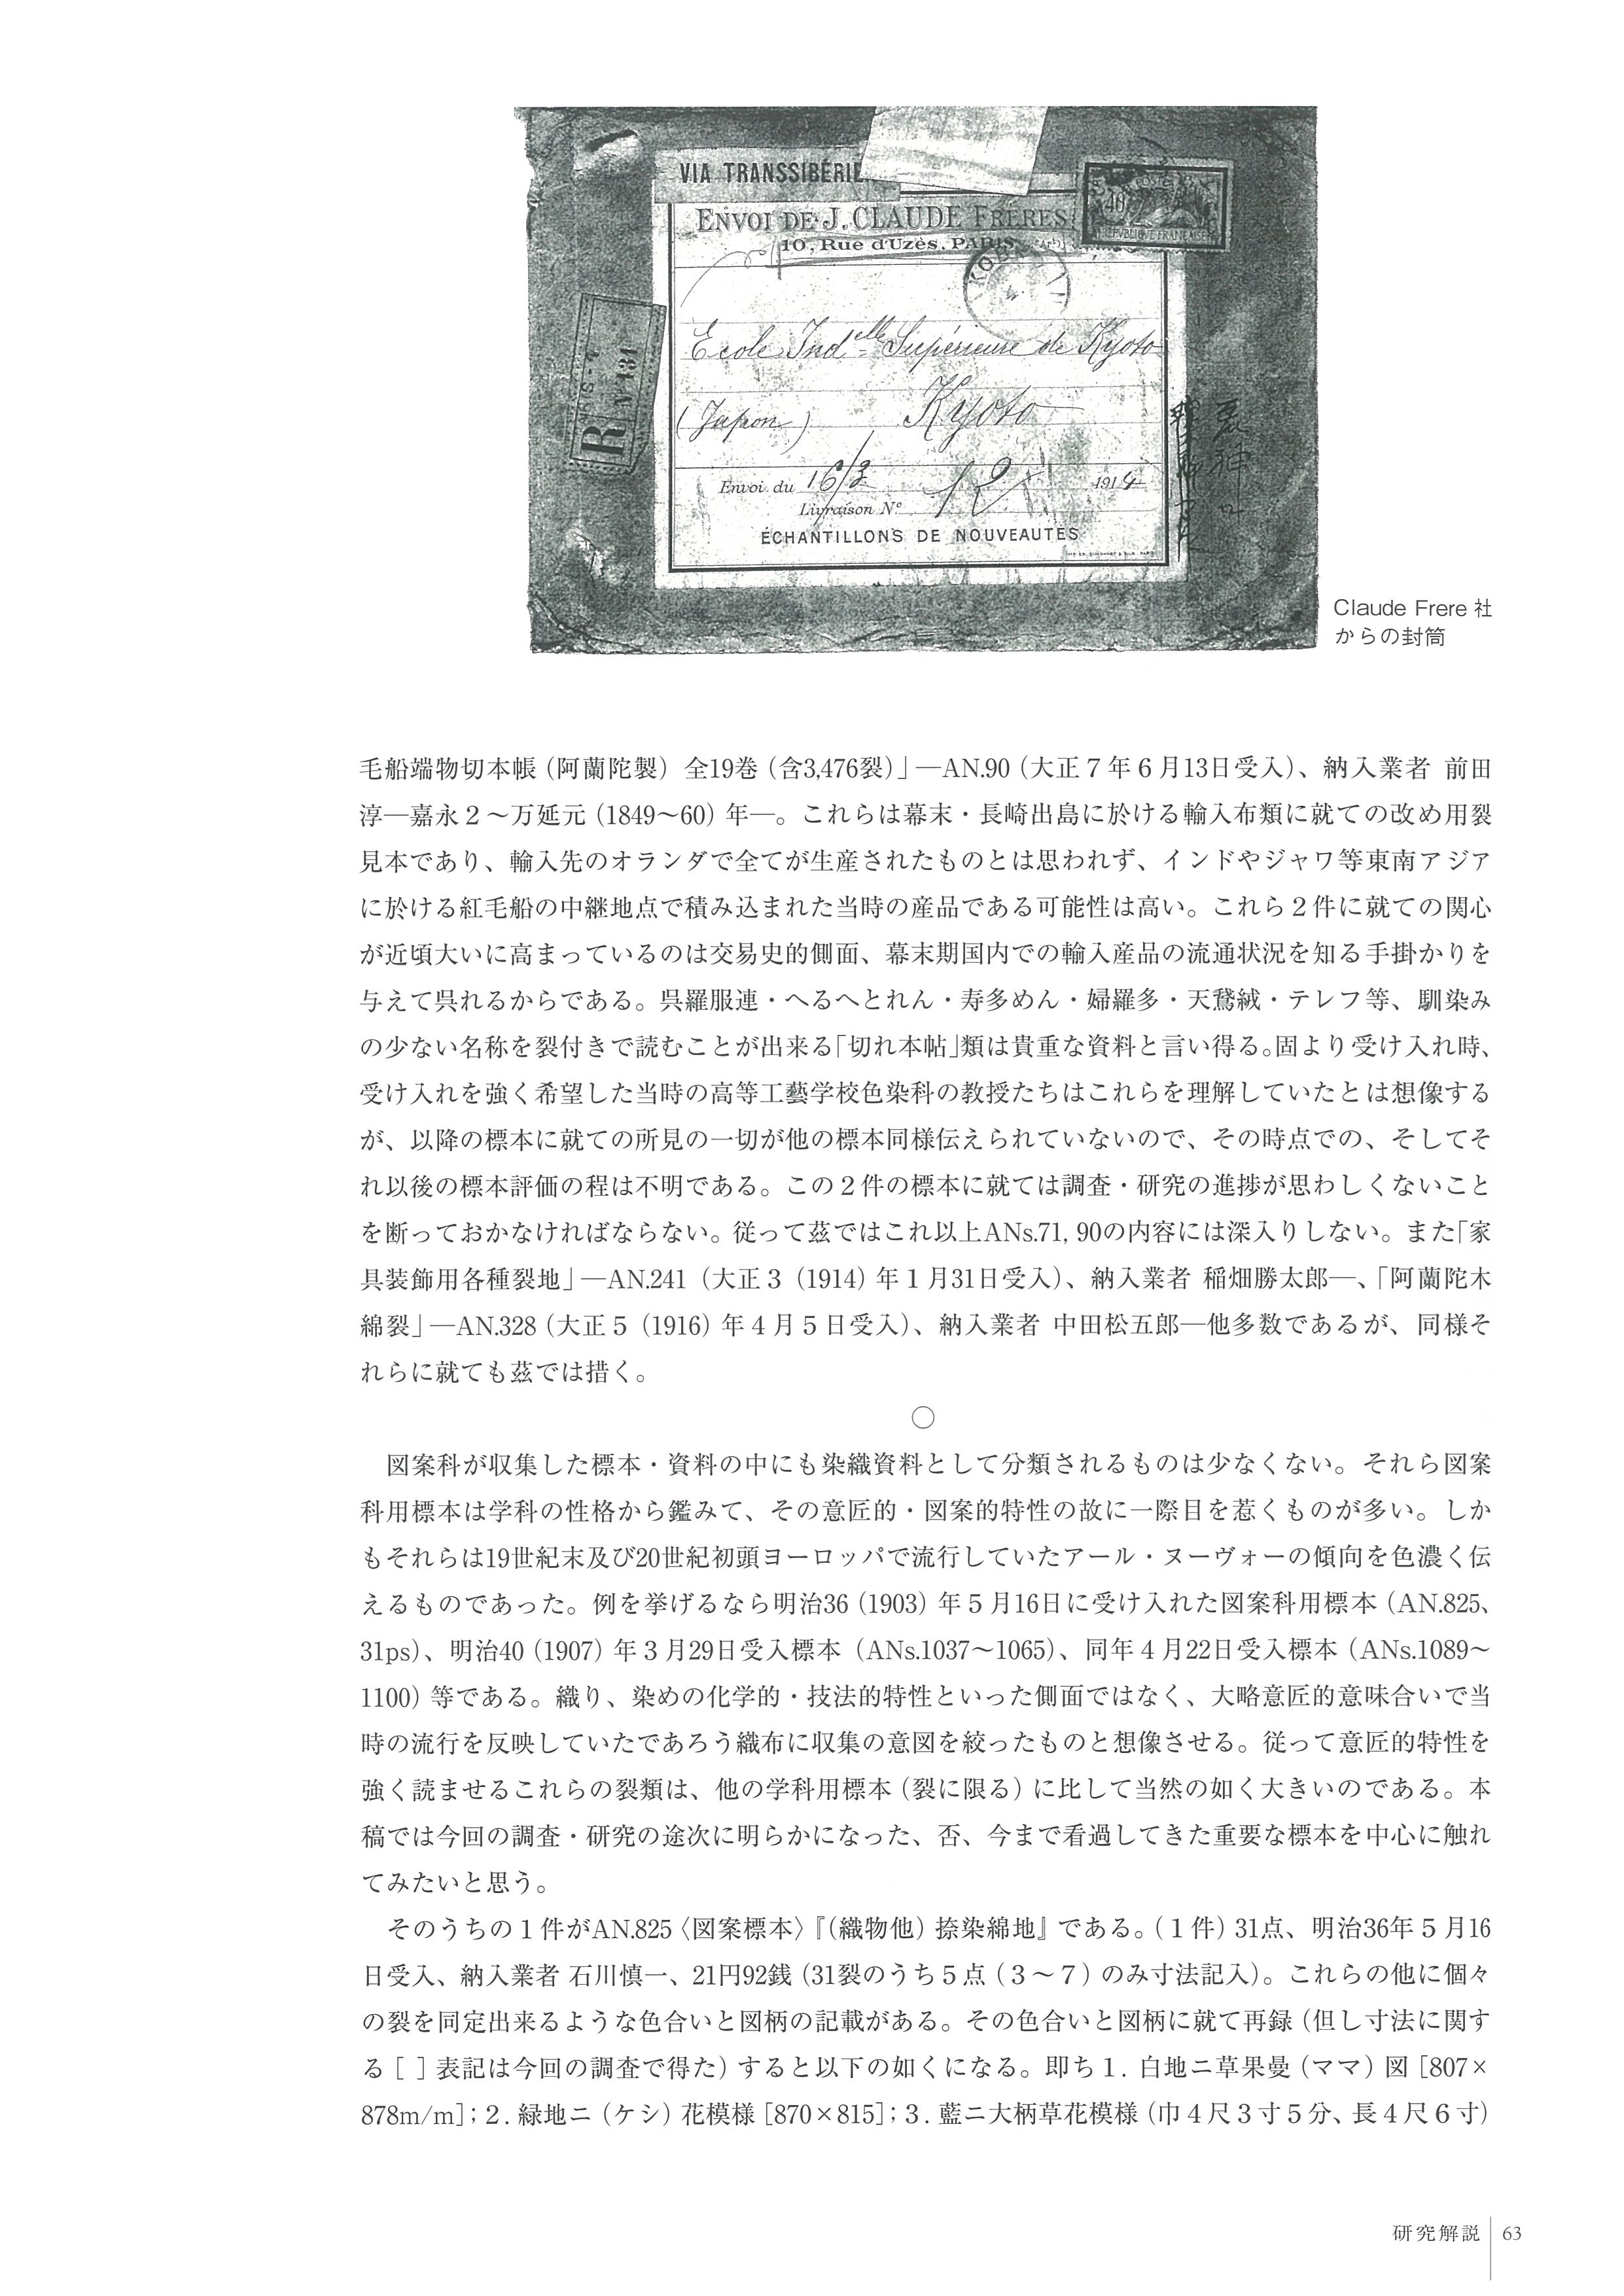 VIA TRANSSIBÉRIE
ENVOI DE J. CLAUDE FRÈRES
10, Rue d'Uzès, PARIS
40
POSTE
REPUBLIQUE FRANÇAISE
KOBE
R
N° 131
École Ind^elle Supérieure de Kyoto
(Japon) Kyoto
Envoi du 16/3 1914
Livraison N° 12
ÉCHANTILLONS DE NOUVEAUTÉS
Claude Frere 社
からの封筒
毛船端物切本帳（阿蘭陀製） 全19巻（含3,476裂）」―AN.90（大正７年６月13日受入）、納入業者 前田
淳―嘉永２～万延元（1849～60）年―。これらは幕末・長崎出島に於ける輸入布類に就ての改め用裂
見本であり、輸入先のオランダで全てが生産されたものとは思われず、インドやジャワ等東南アジア
に於ける紅毛船の中継地点で積み込まれた当時の産品である可能性は高い。これら２件に就ての関心
が近頃大いに高まっているのは交易史的側面、幕末期国内での輸入産品の流通状況を知る手掛かりを
与えて呉れるからである。呉羅服連・へるへとれん・寿多めん・婦羅多・天鵞絨・テレフ等、馴染み
の少ない名称を裂付きで読むことが出来る「切れ本帖」類は貴重な資料と言い得る。固より受け入れ時、
受け入れを強く希望した当時の高等工藝学校色染科の教授たちはこれらを理解していたとは想像する
が、以降の標本に就ての所見の一切が他の標本同様伝えられていないので、その時点での、そしてそ
れ以後の標本評価の程は不明である。この２件の標本に就ては調査・研究の進捗が思わしくないこと
を断っておかなければならない。従って茲ではこれ以上ANs.71, 90の内容には深入りしない。また「家
具装飾用各種裂地」―AN.241（大正３（1914）年１月31日受入）、納入業者 稲畑勝太郎―、「阿蘭陀木
綿裂」―AN.328（大正５（1916）年４月５日受入）、納入業者 中田松五郎―他多数であるが、同様そ
れらに就ても茲では措く。
○
図案科が収集した標本・資料の中にも染織資料として分類されるものは少なくない。それら図案
科用標本は学科の性格から鑑みて、その意匠的・図案的特性の故に一際目を惹くものが多い。しか
もそれらは19世紀末及び20世紀初頭ヨーロッパで流行していたアール・ヌーヴォーの傾向を色濃く伝
えるものであった。例を挙げるなら明治36（1903）年５月16日に受け入れた図案科用標本（AN.825、
31ps）、明治40（1907）年３月29日受入標本（ANs.1037～1065）、同年４月22日受入標本（ANs.1089～
1100）等である。織り、染めの化学的・技法的特性といった側面ではなく、大略意匠的意味合いで当
時の流行を反映していたであろう織布に収集の意図を絞ったものと想像させる。従って意匠的特性を
強く読ませるこれらの裂類は、他の学科用標本（裂に限る）に比して当然の如く大きいのである。本
稿では今回の調査・研究の途次に明らかになった、否、今まで看過してきた重要な標本を中心に触れ
てみたいと思う。
そのうちの１件がAN.825〈図案標本〉『（織物他）捺染綿地』である。（１件）31点、明治36年５月16
日受入、納入業者 石川慎一、21円92銭（31裂のうち５点（３～７）のみ寸法記入）。これらの他に個々
の裂を同定出来るような色合いと図柄の記載がある。その色合いと図柄に就て再録（但し寸法に関す
る［ ］表記は今回の調査で得た）すると以下の如くになる。即ち１. 白地ニ草果曼（ママ）図［807×
878m/m］；２. 緑地ニ（ケシ）花模様［870×815］；３. 藍ニ大柄草花模様（巾４尺３寸５分、長４尺６寸）
研究解説 63